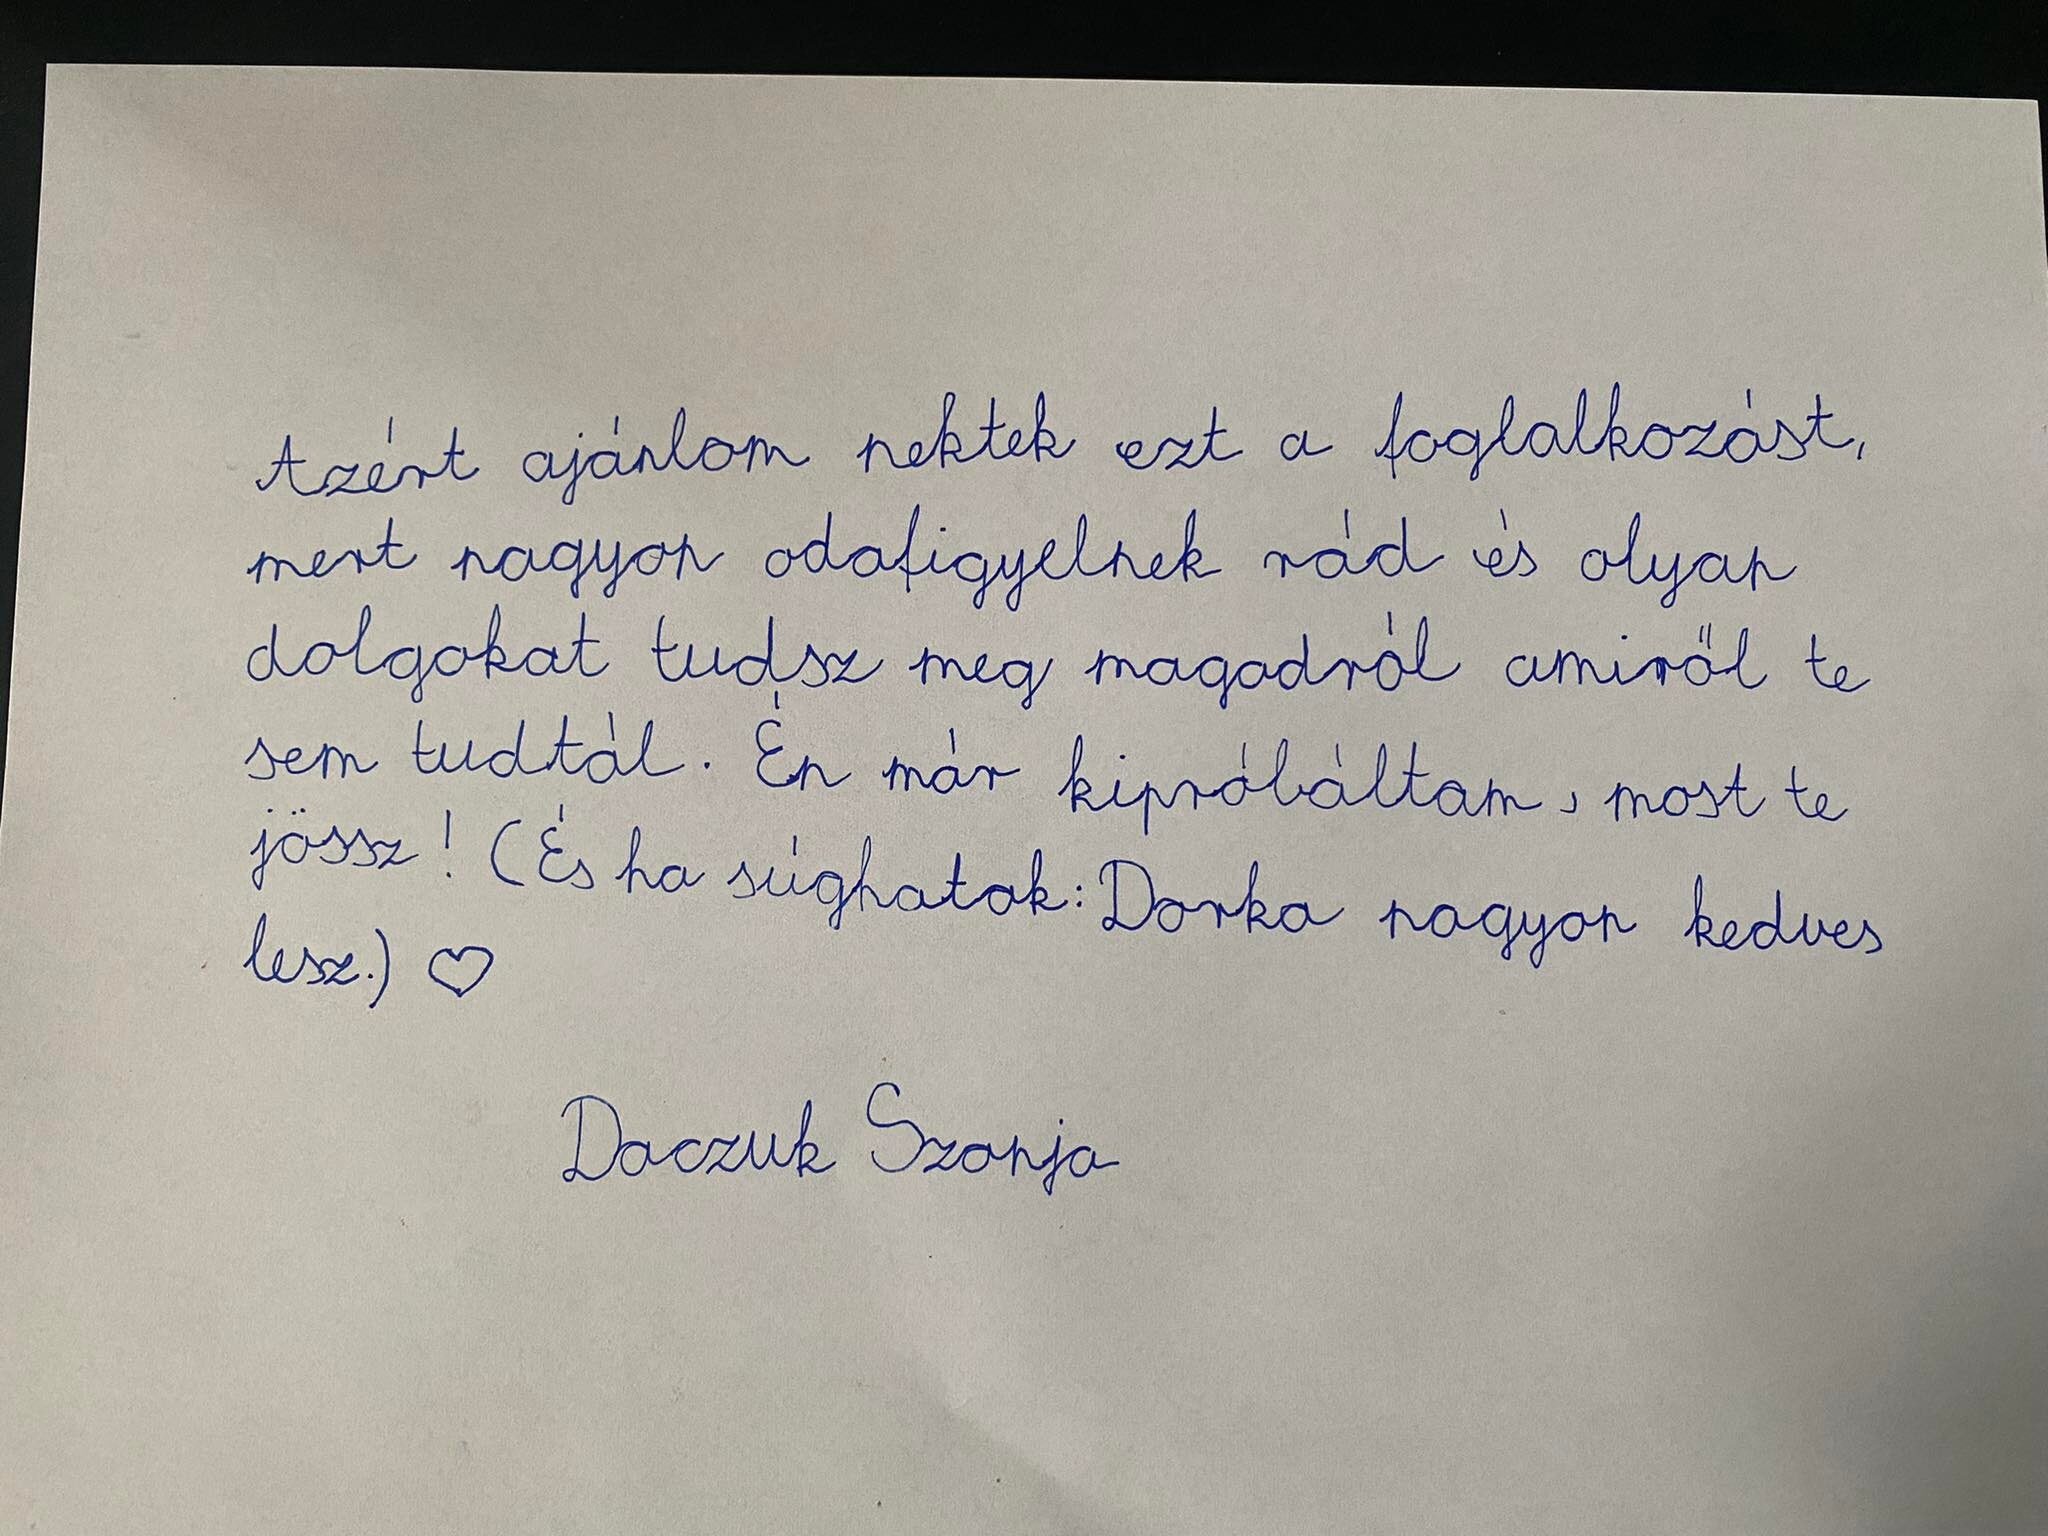 Azért ajánlom nektek ezt a foglalkozást,
mert nagyon odafigyelnek rád és olyan
dolgokat tudsz meg magadról amiről te
sem tudtál. Én már kipróbáltam, most te
jössz! (És ha súghatok: Dorka nagyon kedves
lesz.) ♡
Daczuk Szonja